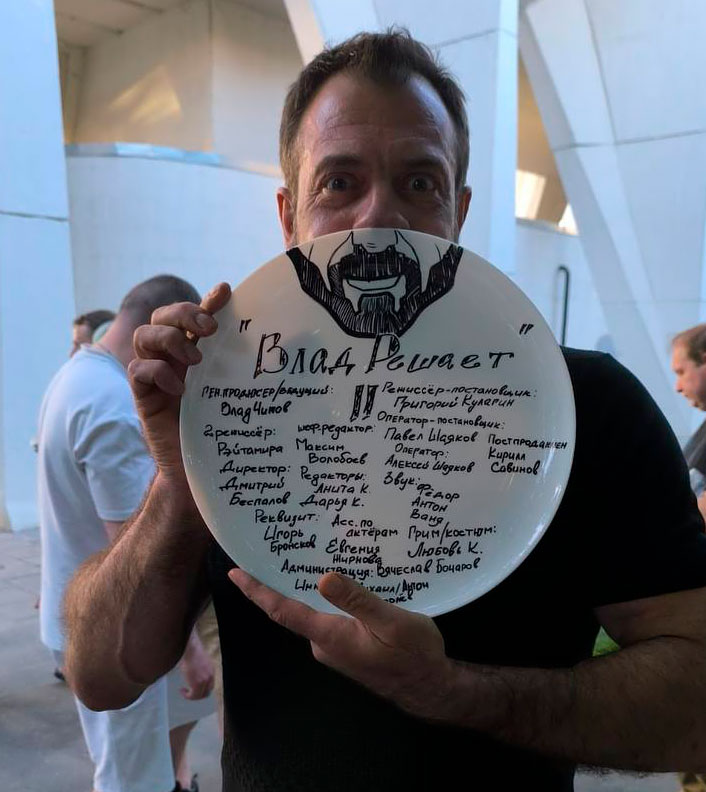 "Влад Решает"
II
ген.продюсер/ведущий:
Влад Чижов
Режиссёр-постановщик:
Григорий Куларин
Оператор-постановщик:
Павел Шадков
2режиссёр:
Рэйтамира
шеф.редактор:
Максим
Волобоев
Оператор:
Алексей Шадков
Постпродакшен
Кирилл
Савинов
Директор:
Дмитрий
Беспалов
Редакторы:
Анита К.
Дарья К.
Звук:
Фёдор
Антон
Ваня
Реквизит:
Игорь
Бронсков
Асс. по
актёрам
Евгения
Жирнова
Грим/костюм:
Любовь К.
Администрация: Вячеслав Бочаров